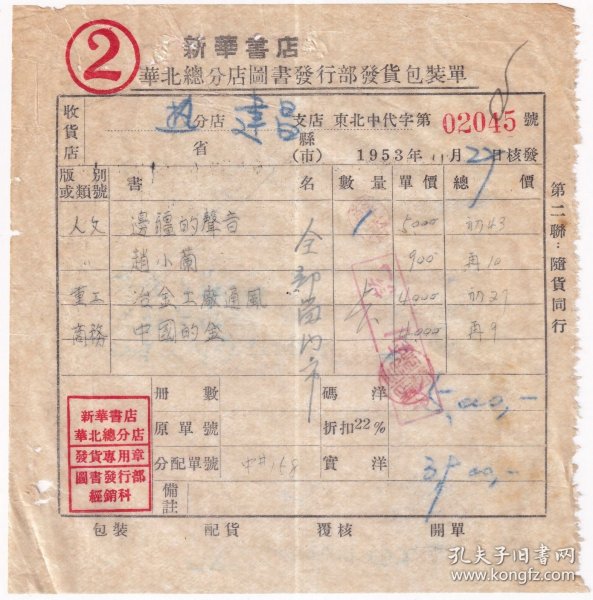 2
新華書店
華北總分店圖書發行部發貨包裝單
收貨店 分店 建昌 支店 東北中代字第 02045 號
省 縣(市) 1953年11月27日核發
版別或類號 書名 數量 單價 總價
人文 邊疆的聲音 1 5000 初43
〃 趙小蘭 900 再10
重工 冶金工廠通風 4000 初27
商務 中國的金 再9
全部當門市
冊數 碼洋 5,000,-
原單號 折扣22%
分配單號 實洋
備註
包裝 配貨 覆核 開單
新華書店
華北總分店
發貨專用章
圖書發行部
經銷科
第二聯：隨貨同行
孔夫子旧书网
www.kongfz.com